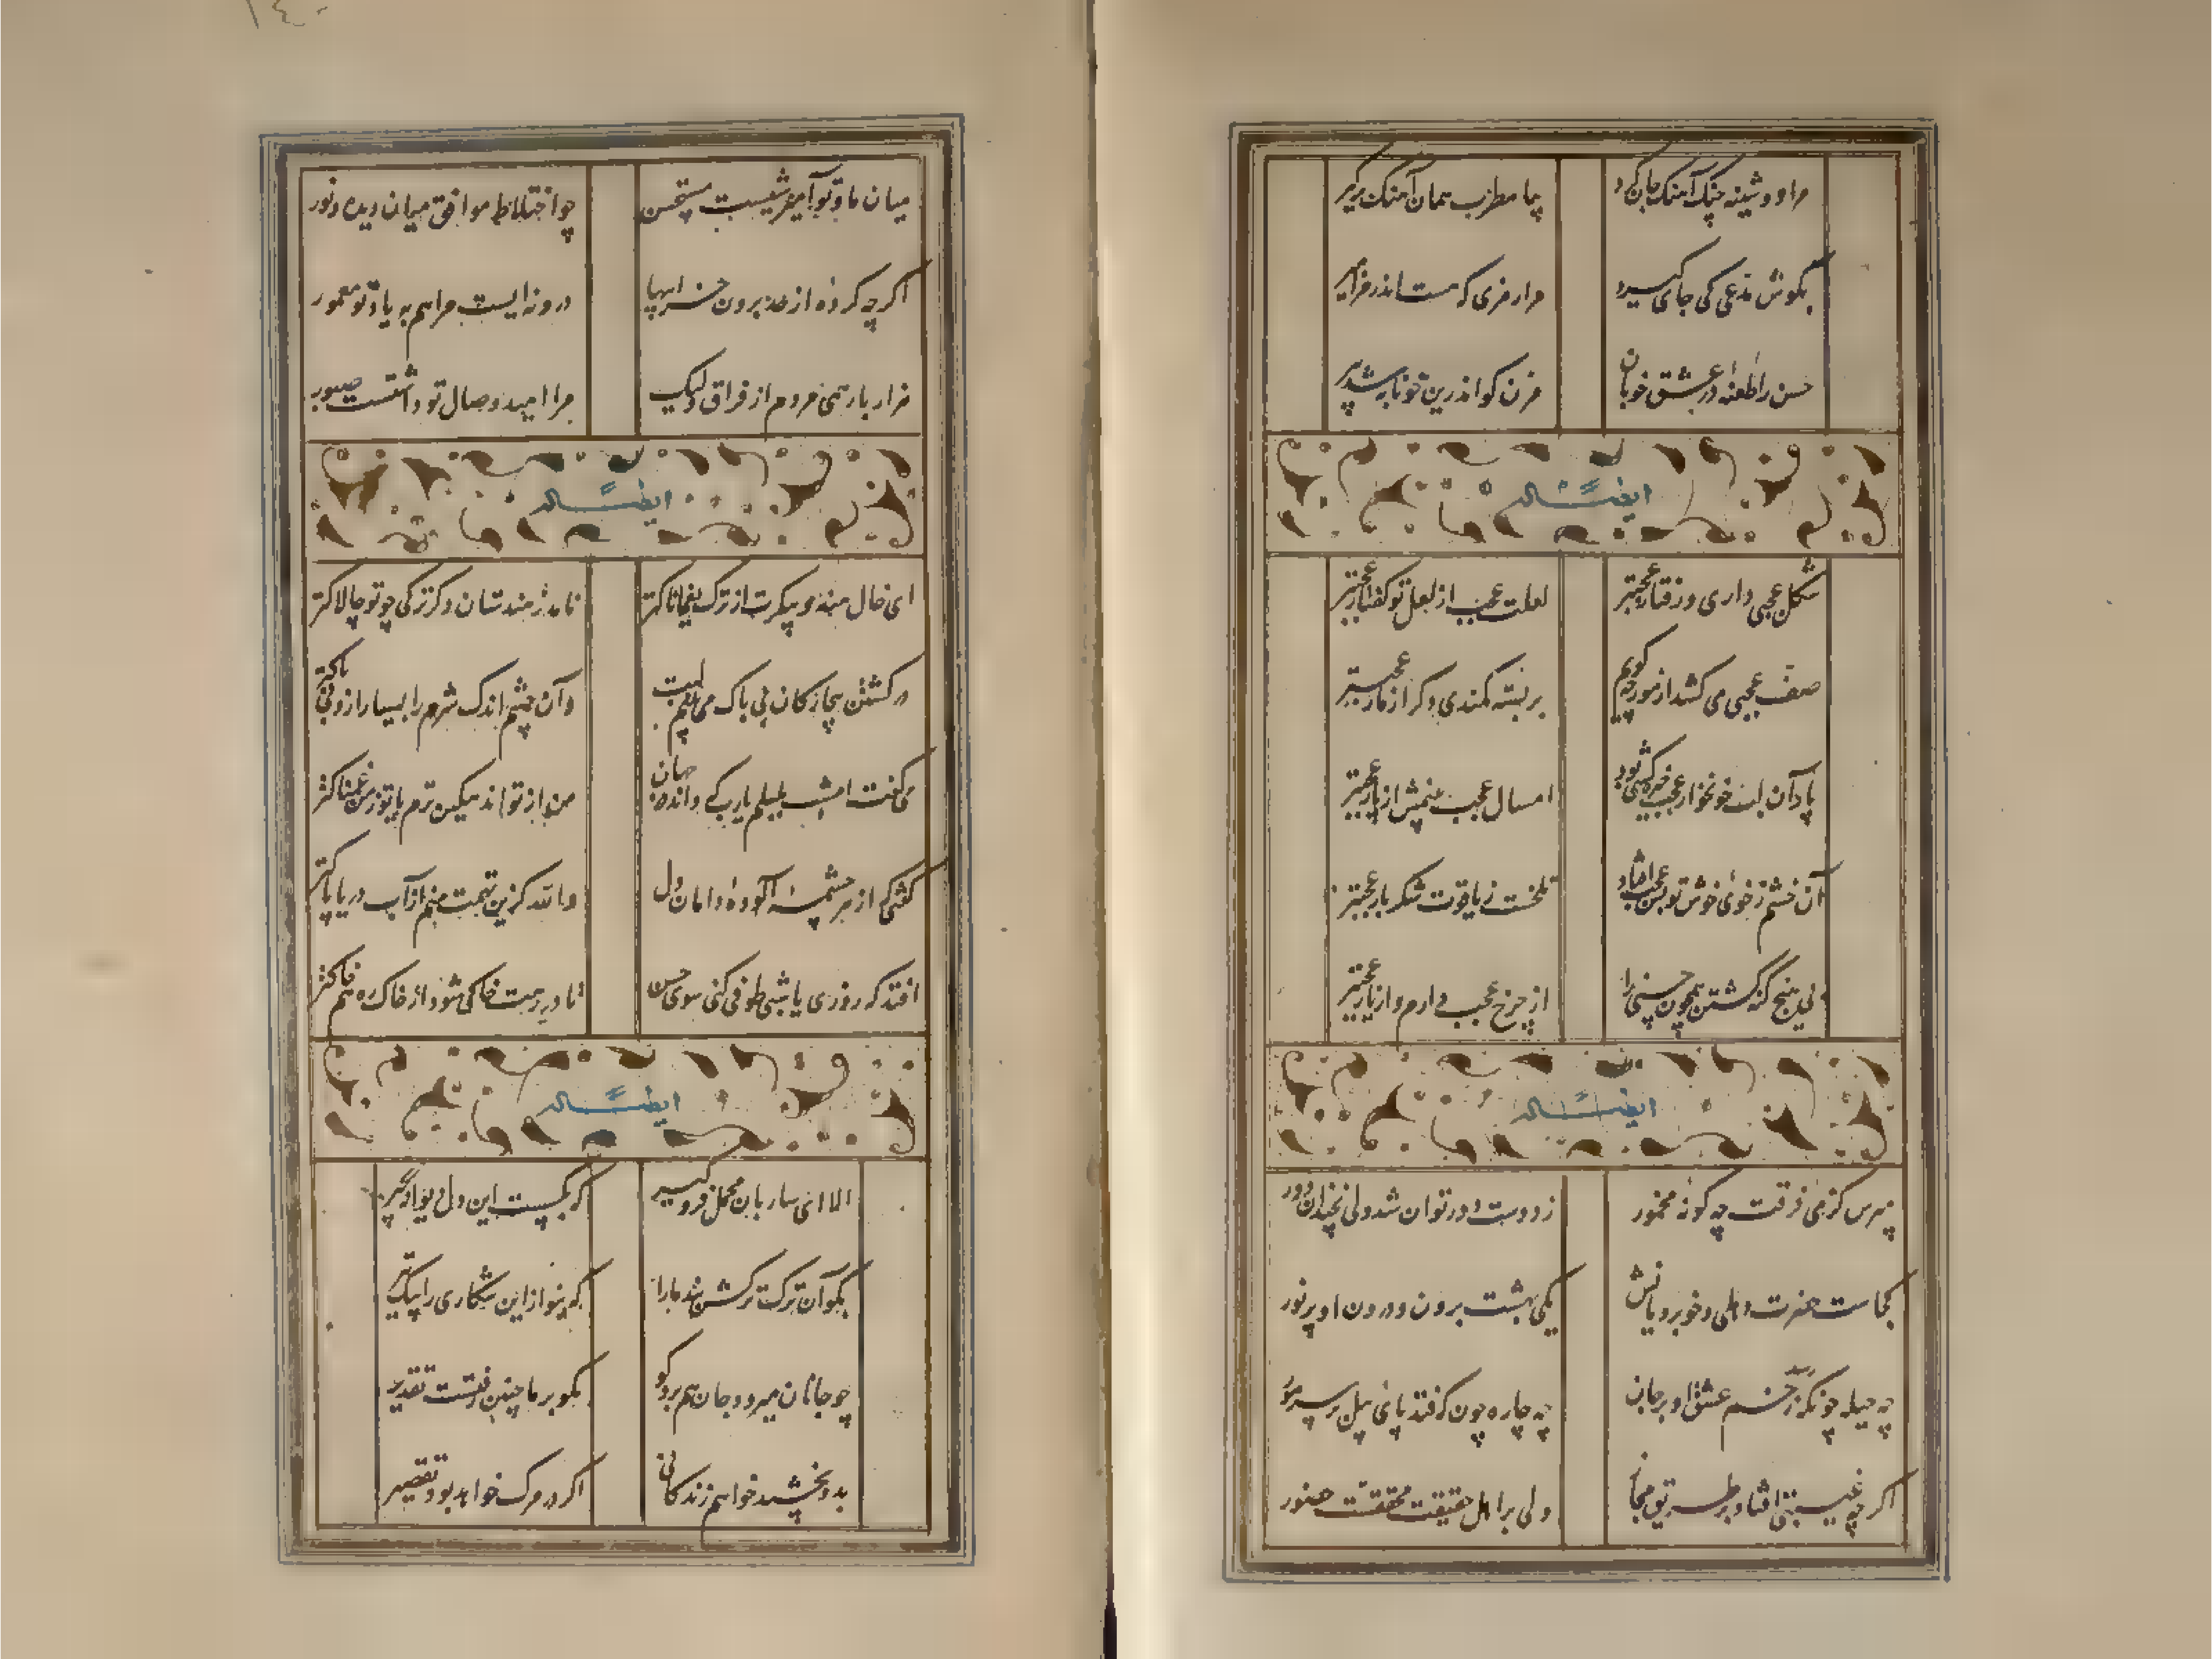 مرا دوشینه چنگ آهنگ جان کرد
بیا مطرب همان آهنگ برگیر
بگوش مدعی کی جای گیرد
مرا رمزی که هست اندر مزامیر
حسن را طعنه در عشق خوبان
مزن کو اندرین خونابه شد پیر
ایضاً له
شکل عجبی داری و رفتار عجبتر
لعلت عجب از لعل تو گفتار عجبتر
صف عجبی می کشد از مور چه گویم
بر بسته کمندی دگر از مار عجبتر
پار آن لب خونخوار عجب خیره کشی بود
امسال عجب بینمش از پار عجبتر
آن خشم ز خوی خوش تو بس عجب افتاد
تلخست ز یاقوت شکر بار عجبتر
بی هیچ گنه کشتن همچون حسنی را
از چرخ عجب دارم و از یار عجبتر
ایضاً له
مپرس کز می فرقت چه گونه مخمور
ز دوست دور توان شد ولی نچندان دور
کجاست حضرت دهلی و خوبرویانش
یکی بهشت برون و درون او پر نور
چه حیله چونکه رسد زخم عشق او بر جان
چه چاره چون که فتد پای پیل بر سر مور
اگر چه غیبتی افتاد بر طریق مجاز
ولی بر اهل حقیقت محققست حضور
میان ما و تو آمیزشیست مستحسن
چو اختلاط موافق میان دیده و نور
اگر چه کرده از حد برون خرابیها
درونه ایست مرا هم به یاد تو معمور
هزار بار همی مردم از فراق ولیک
مرا امید وصال تو داشتست صبور
ایضاً له
ای خال هندو پیکرت از ترک یغما ناکتر
نامد ز هندستان دگر ترکی چو تو چالاکتر
در کشتن بیچارگان بی باک می بینم لبت
وآن چشم اندک شرم را بسیار ازو بی باکتر
می گفت امشب بلبلم یارب که داند در جهان
من از تو اندهگین ترم یا تو ز من غمناکتر
گفتی که از هر چشمه آلوده دامان دل
والله کزین تهمت منم از آب دریا پاکتر
افتد که روزی یا شبی طوفی کنی سوی حسن
تا در رهت خاکی شود از خاک ره هم خاکتر
ایضاً له
الا ای ساربان محمل فرو گیر
که بگسست این دل دیوانه زنجیر
بگو آن ترک ترکش بند ما را
که بنواز این شکاری را بیک تیر
چو جانان میرود جان هم برد گو
بگو بر ما چنین رفتست تقدیر
بدو بخشید خواهم زندگانی
اگر در مرگ خواهد بود تقصیر